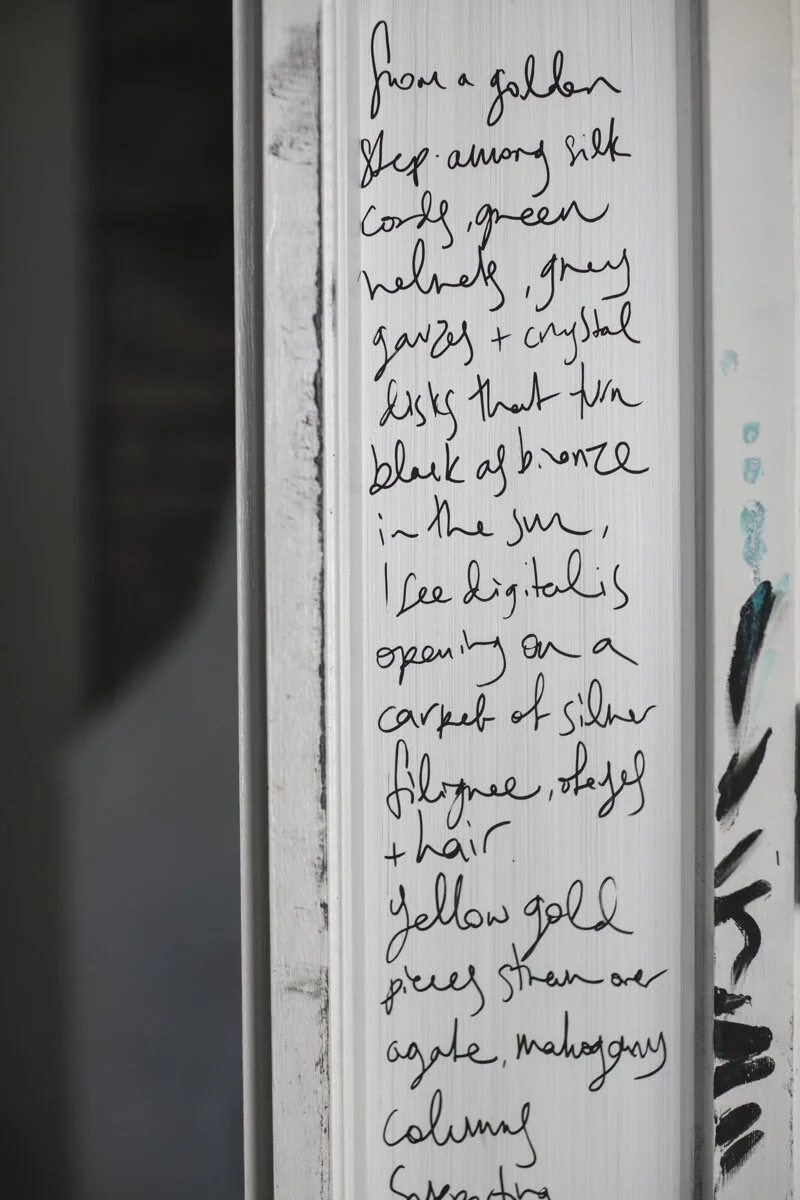 from a golden
step. among silk
cords, green
velvets, grey
gauzes + crystal
disks that turn
black as bronze
in the sun,
I see digitalis
opening on a
carpet of silver
filigree, of eyes
+ hair.
Yellow gold
pieces strewn over
agate, mahogany
columns
Supporting